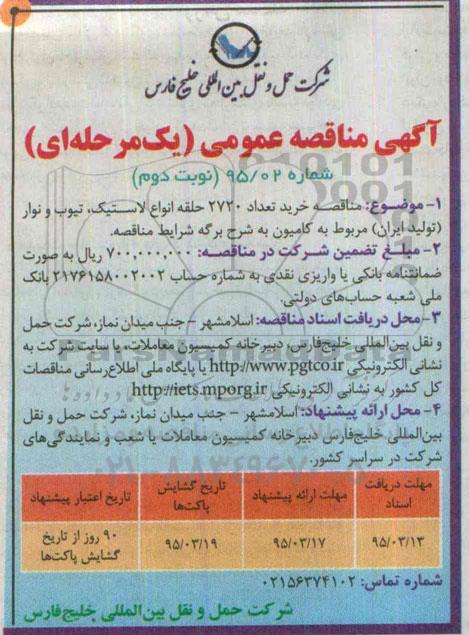 شرکت حمل و نقل بین المللی خلیج فارس
آگهی مناقصه عمومی (یک‌مرحله‌ای)
شماره ۹۵/۰۲ (نوبت دوم)
۱- موضوع: مناقصه خرید تعداد ۲۷۲۰ حلقه انواع لاستیک، تیوب و نوار
(تولید ایران) مربوط به کامیون به شرح برگه شرایط مناقصه.
۲- مبلغ تضمین شرکت در مناقصه: ۷۰۰,۰۰۰,۰۰۰ ریال به صورت
ضمانتنامه بانکی یا واریزی نقدی به شماره حساب ۲۱۷۶۱۵۸۰۰۲۰۰۲ بانک
ملی شعبه حساب‌های دولتی.
۳- محل دریافت اسناد مناقصه: اسلامشهر - جنب میدان نماز، شرکت حمل
و نقل بین‌المللی خلیج‌فارس، دبیرخانه کمیسیون معاملات، یا سایت شرکت به
نشانی الکترونیکی http://www.pgtco.ir یا پایگاه ملی اطلاع‌رسانی مناقصات
کل کشور به نشانی الکترونیکی http://iets.mporg.ir
۴- محل ارائه پیشنهاد: اسلامشهر - جنب میدان نماز، شرکت حمل و نقل
بین‌المللی خلیج‌فارس دبیرخانه کمیسیون معاملات یا شعب و نمایندگی‌های
شرکت در سراسر کشور.
مهلت دریافت اسناد | مهلت ارائه پیشنهاد | تاریخ گشایش پاکت‌ها | تاریخ اعتبار پیشنهاد
۹۵/۰۳/۱۳ | ۹۵/۰۳/۱۷ | ۹۵/۰۳/۱۹ | ۹۰ روز از تاریخ گشایش پاکت‌ها
شماره تماس: ۰۲۱۵۶۳۷۴۱۰۲
شرکت حمل و نقل بین المللی خلیج‌فارس